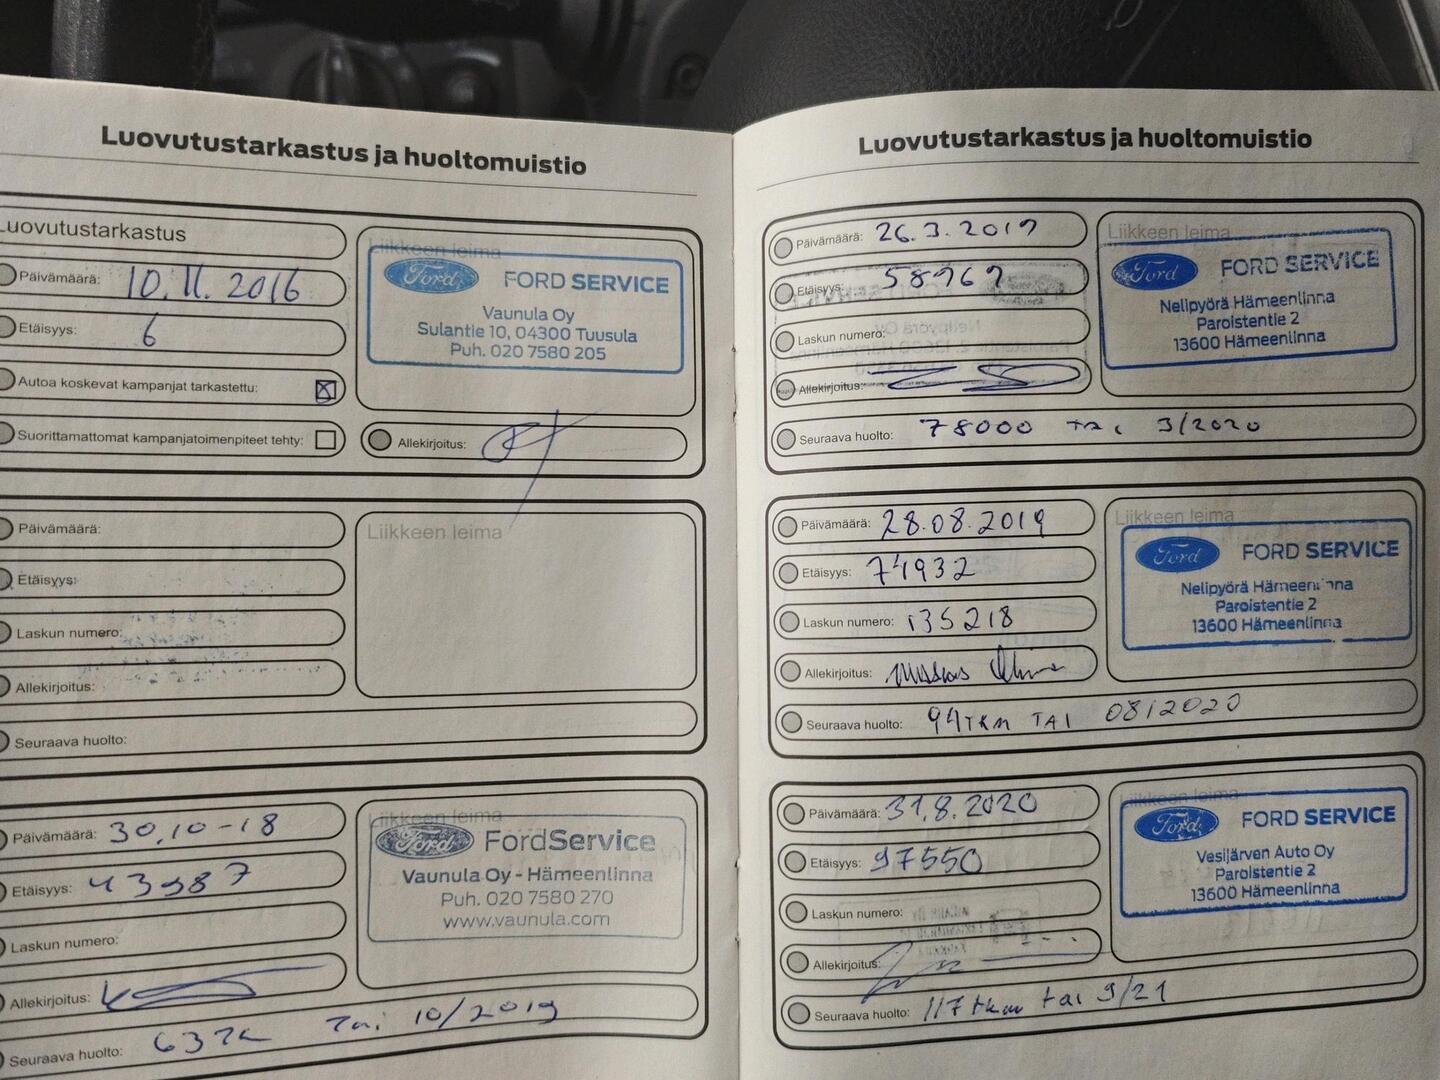 Luovutustarkastus ja huoltomuistio
Luovutustarkastus
Päivämäärä: 10.11.2016
Etäisyys: 6
Autoa koskevat kampanjat tarkastettu: ☒
Suorittamattomat kampanjatoimenpiteet tehty: ☐
Liikkeen leima
Ford FORD SERVICE
Vaunula Oy
Sulantie 10, 04300 Tuusula
Puh. 020 7580 205
Allekirjoitus:
Päivämäärä:
Etäisyys:
Laskun numero:
Allekirjoitus:
Seuraava huolto:
Liikkeen leima
Päivämäärä: 30.10-18
Etäisyys: 43987
Laskun numero:
Allekirjoitus:
Seuraava huolto: 63 Tai 10/2019
Liikkeen leima
Ford FordService
Vaunula Oy - Hämeenlinna
Puh. 020 7580 270
www.vaunula.com
Luovutustarkastus ja huoltomuistio
Päivämäärä: 26.3.2019
Etäisyys: 58969
Laskun numero:
Allekirjoitus:
Seuraava huolto: 78000 TAI 3/2020
Liikkeen leima
Ford FORD SERVICE
Nelipyörä Hämeenlinna
Paroistentie 2
13600 Hämeenlinna
Päivämäärä: 28.08.2019
Etäisyys: 74932
Laskun numero: 135218
Allekirjoitus:
Seuraava huolto: 94TKM TAI 08/2020
Liikkeen leima
Ford FORD SERVICE
Nelipyörä Hämeenlinna
Paroistentie 2
13600 Hämeenlinna
Päivämäärä: 31.8.2020
Etäisyys: 97550
Laskun numero:
Allekirjoitus:
Seuraava huolto: 117 tkm tai 9/21
Liikkeen leima
Ford FORD SERVICE
Vesijärven Auto Oy
Paroistentie 2
13600 Hämeenlinna